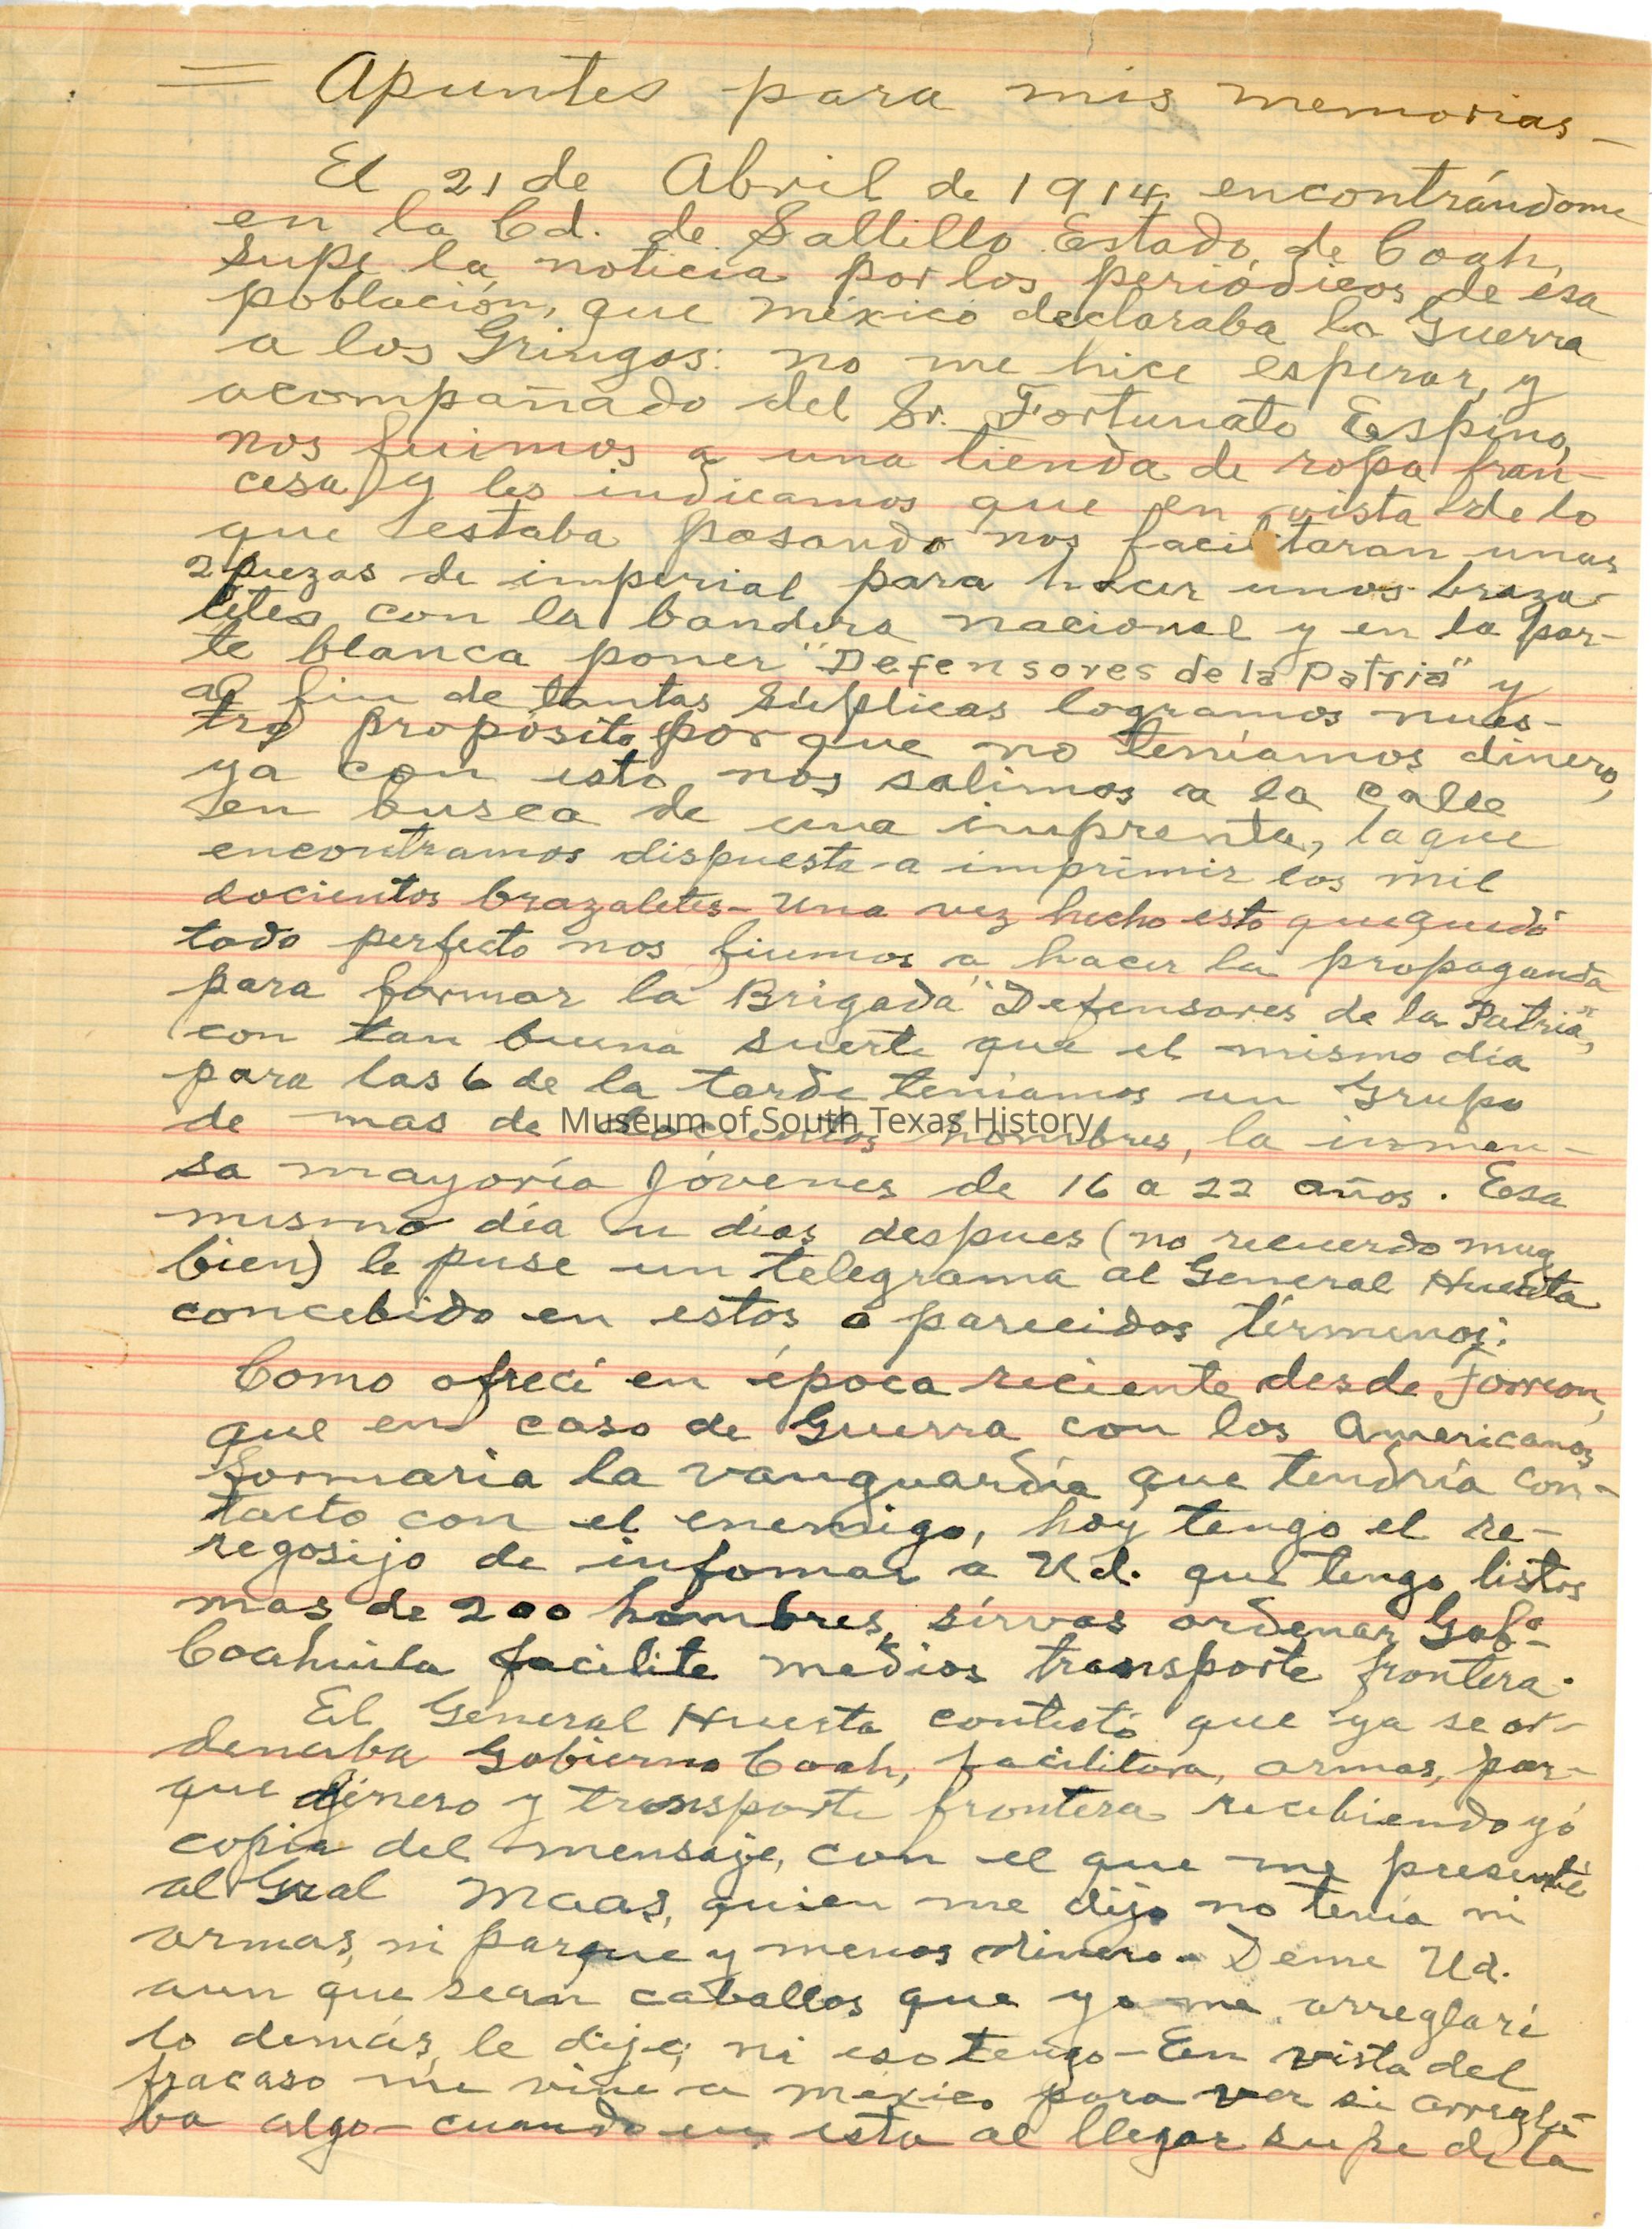 = Apuntes para mis memorias -
El 21 de Abril de 1914, encontrándome
en la Cd. de Saltillo Estado, de Coah,
supe la noticia por los periódicos de esa
población, que mexico declaraba la Guerra
a los Gringos: no me hice esperar, y
acompañado del Sr. Fortunato Espino,
nos fuimos a una tienda de ropa fran-
cesa y les indicamos que en vista de lo
que estaba pasando nos facilitaran unas
2 piezas de imperial para hacer unos braza-
letes con la bandera nacional y en la par-
te blanca poner "Defensores de la Patria" y
al fin de tantas súplicas logramos nues-
tro proposito por que no teniamos dinero,
ya con esto, nos salimos a la calle
en busca de una imprenta, la que
encontramos dispuesta a imprimir los mil
docientos brazaletes - Una vez hecho esto que quedó
todo perfecto nos fiumos a hacer la propaganda
para formar la Brigada "Defensores de la Patria",
con tan buena suerte que el mismo dia
para las 6 de la tarde teniamos un Grupo
de mas de docientos hombres, la inmen-
Museum of South Texas History
sa mayoría jóvenes de 16 a 22 años. Ese
mismo día u dias despues (no recuerdo muy
bien) le puse un telegrama al General Huerta
concebido en estos o parecidos términos:
Como ofrecí en época reciente desde Torreon,
que en caso de Guerra con los Americanos
formaria la vanguardia que tendría con-
tacto con el enemigo, hoy tengo el re-
regosijo de infomar a Ud. que tengo listos
mas de 200 hombres, sírvas ordenar Gobo-
Coahuila facilite medios transporte frontera.
El General Huerta contestó que ya se or-
denaba Gobierno Coah, facilitara, armas, par-
que dinero y transporte frontera recibiendo yó
copia del mensaje, con el que me presenté
al Gral Maas, quien me dijo no tenia ni
armas, ni parque y menos dinero - Deme Ud.
aun que sean caballos que yo me arreglaré
lo demás, le dije; ni eso tengo - En vista del
fracaso me vine a mexico para ver si arregla-
ba algo - cuando en esta al llegar supe de la